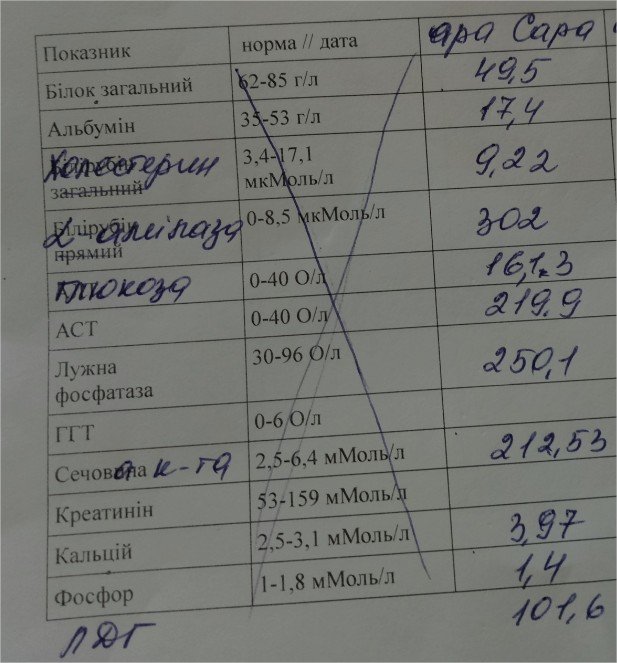 Показник норма // дата ара Сара
Білок загальний 62-85 г/л 49,5
Альбумін 35-53 г/л 17,4
Холестерин 3,4-17,1 9,22
загальний мкМоль/л
Білірубін 0-8,5 мкМоль/л 302
2 аміłаза
прямий
Глюкоза 0-40 О/л 16,1.3
АСТ 0-40 О/л 219.9
Лужна 30-96 О/л 250,1
фосфатаза
ГГТ 0-6 О/л
Сечова к-та 2,5-6,4 мМоль/л 212,53
Креатинін 53-159 мМоль/л
Кальцій 2,5-3,1 мМоль/л 3,97
Фосфор 1-1,8 мМоль/л 1,4
ЛДГ 101,6